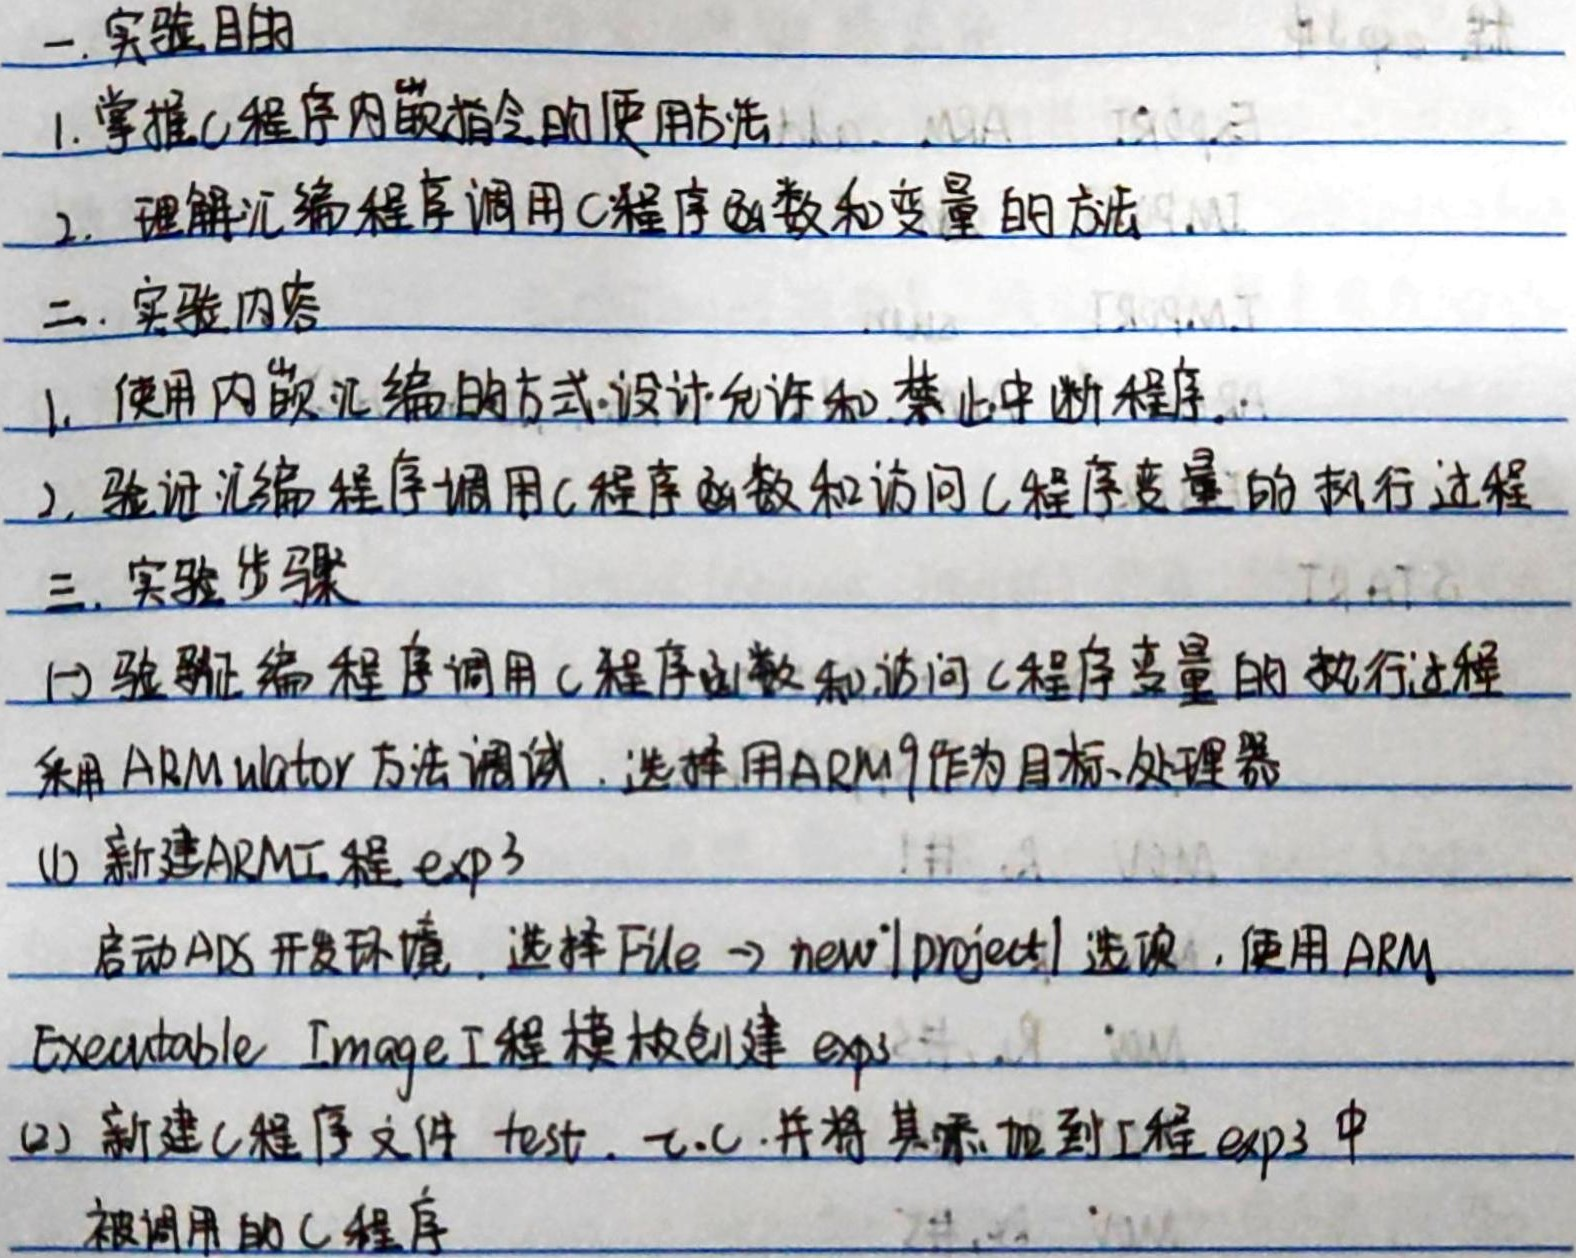 一. 实验目的
1. 掌握C程序内嵌指令的使用方法
2. 理解汇编程序调用C程序函数和变量的方法.
二. 实验内容
1. 使用内嵌汇编的方式设计允许和禁止中断程序.
2. 验证汇编程序调用C程序函数和访问C程序变量的执行过程
三. 实验步骤
(一) 验证编程序调用C程序函数和访问C程序变量的执行过程
采用ARMulator方法调试. 选择用ARM9作为目标处理器
(1) 新建ARM工程 exp3
启动ADS开发环境. 选择File → new|project|选项, 使用ARM
Executable Image工程模板创建 exp3
(2) 新建C程序文件 test. c.c. 并将其添加到工程 exp3 中
被调用的C程序